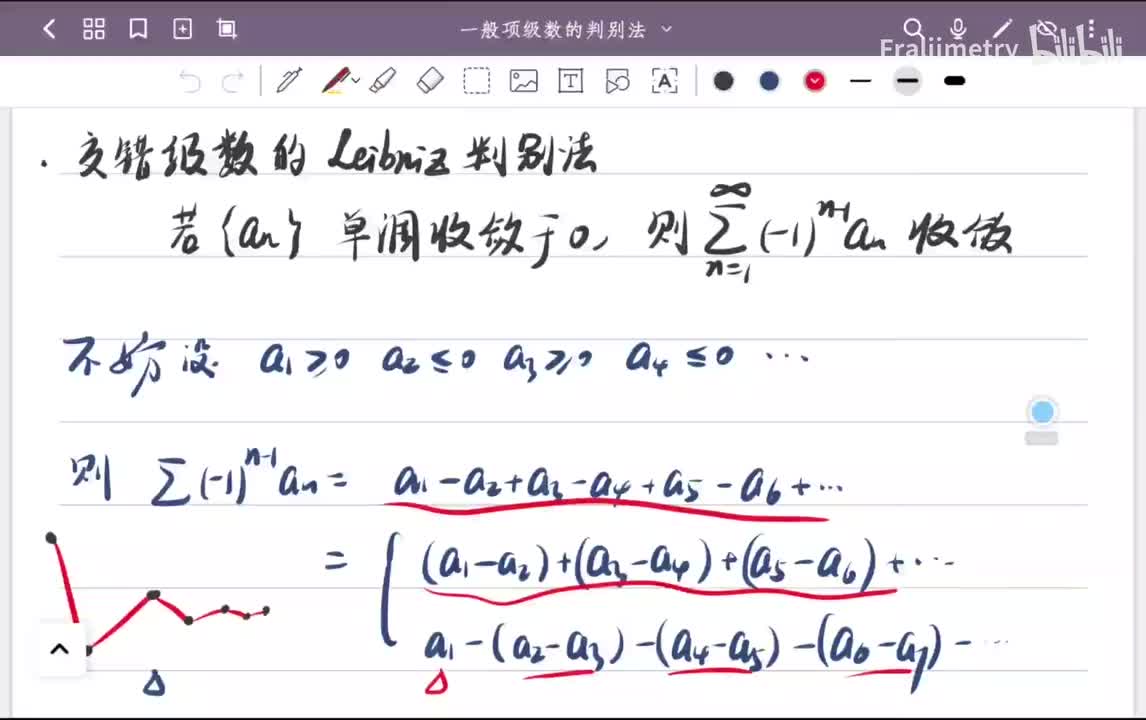 一般项级数的判别法
Fraljimetry bilibili
· 交错级数的 Leibniz 判别法
若{an} 单调收敛于0, 则 ∞∑n=1 (-1)^{n-1} an 收敛
不妨设 a1≥0 a2≤0 a3≥0 a4≤0 ···
则 ∑(-1)^{n-1} an = a1-a2+a3-a4+a5-a6+···
= { (a1-a2)+(a3-a4)+(a5-a6)+···
a1-(a2-a3)-(a4-a5)-(a6-a7)-···